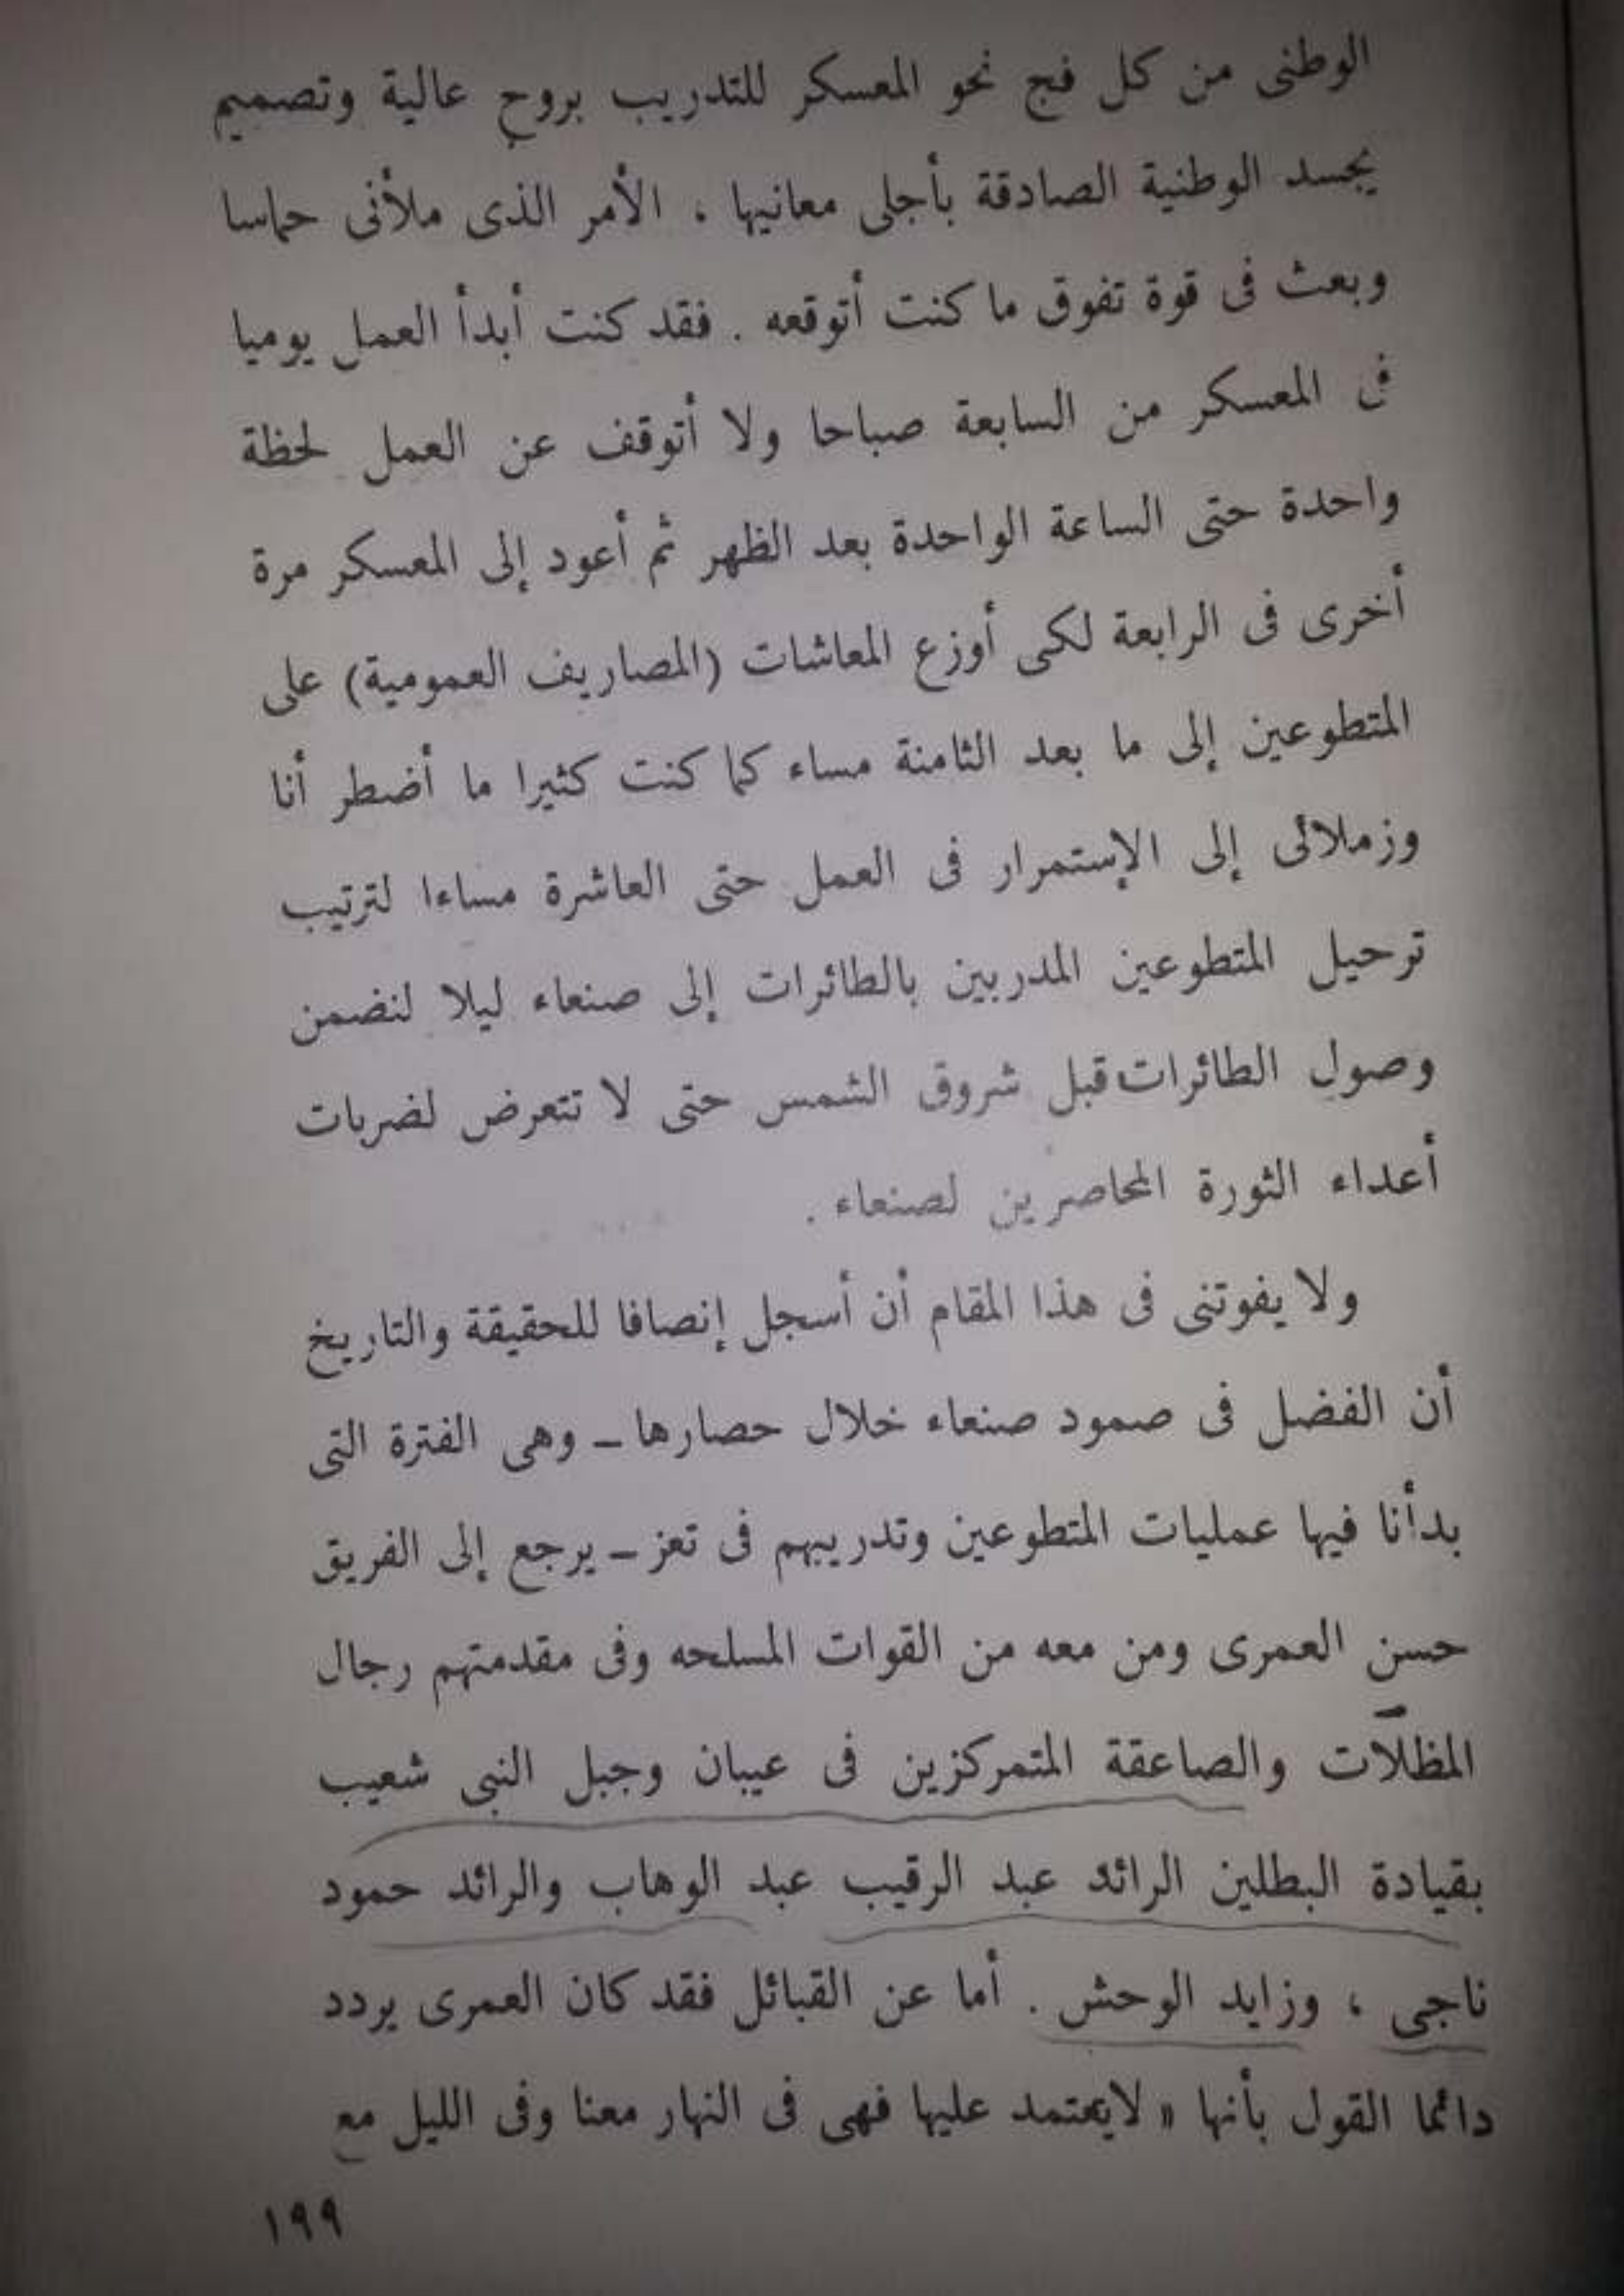 الوطنى من كل فج نحو المعسكر للتدريب بروح عالية وتصميم
يجسد الوطنية الصادقة بأجلى معانيها ، الأمر الذى ملأنى حماسا
وبعث فى قوة تفوق ما كنت أتوقعه . فقد كنت أبدأ العمل يوميا
فى المعسكر من السابعة صباحا ولا أتوقف عن العمل لحظة
واحدة حتى الساعة الواحدة بعد الظهر ثم أعود إلى المعسكر مرة
أخرى فى الرابعة لكى أوزع المعاشات (المصاريف العمومية) على
المتطوعين إلى ما بعد الثامنة مساء كما كنت كثيرا ما أضطر أنا
وزملائى إلى الإستمرار فى العمل حتى العاشرة مساءا لترتيب
ترحيل المتطوعين المدربين بالطائرات إلى صنعاء ليلا لنضمن
وصول الطائرات قبل شروق الشمس حتى لا تتعرض لضربات
أعداء الثورة المحاصرين لصنعاء .
ولا يفوتنى فى هذا المقام أن أسجل إنصافا للحقيقة والتاريخ
أن الفضل فى صمود صنعاء خلال حصارها ـ وهى الفترة التى
بدأنا فيها عمليات المتطوعين وتدريبهم فى تعز ـ يرجع إلى الفريق
حسن العمرى ومن معه من القوات المسلحه وفى مقدمتهم رجال
المظلّات والصاعقة المتمركزين فى عيبان وجبل النبى شعيب
بقيادة البطلين الرائد عبد الرقيب عبد الوهاب والرائد حمود
ناجى ، وزايد الوحش . أما عن القبائل فقد كان العمرى يردد
دائما القول بأنها « لايعتمد عليها فهى فى النهار معنا وفى الليل مع
١٩٩